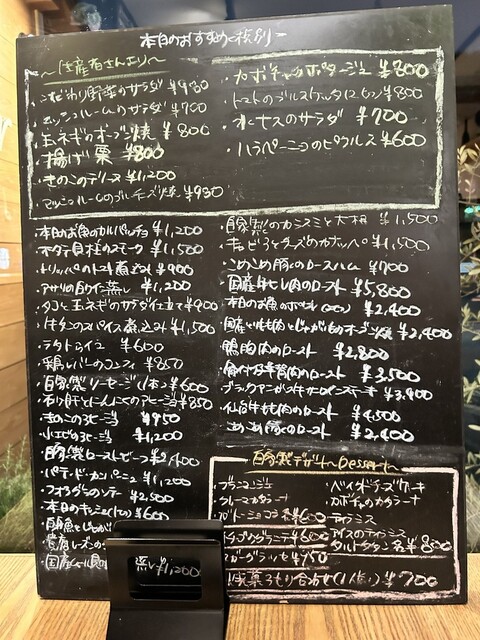 本日のおすすめ
〜生産者さんより〜
・こだわり野菜のサラダ ¥980
・マッシュルームのサラダ ¥700
・玉ネギのオーブン焼 ¥800
・揚げ栗 ¥800
・きのこのテリーヌ ¥1,200
・マッシュルームのブルーチーズ焼 ¥980
・カボチャのポタージュ ¥800
・トマトのブルスケッタ ¥800
・水ナスのサラダ ¥700
・ハラペーニョのピクルス ¥600
・本日のお魚のカルパッチョ ¥1,200
・ホタテ貝柱のスモーク ¥1,500
・トリッパのトマト煮込み ¥900
・アサリの白ワイン蒸し ¥1,200
・タコと玉ネギのサラダ仕立て ¥900
・牛タンのスパイス煮込み ¥1,500
・ラタトゥイユ ¥600
・鶏レバーのコンフィ ¥850
・自家製ソーセージ(1本) ¥600
・砂肝とにんにくのアヒージョ ¥850
・きのこのアヒージョ ¥950
・小エビのアヒージョ ¥1,200
・自家製ローストビーフ ¥2,400
・パテ・ド・カンパーニュ ¥1,200
・フォアグラのソテー ¥2,500
・本日のキッシュ ¥600
蒸し ¥1,200
・自家製のカラスミと大根 ¥1,500
¥1,500
・こめこめ豚のロースハム ¥700
・国産牛ヒレ肉のロースト ¥5,800
・本日のお魚のポワレ ¥2,400
¥2,400
・鴨胸肉のロースト ¥2,800
・骨付仔羊背肉のロースト ¥3,500
・ブラックアンガス牛サーロインステーキ ¥3,900
・仙台牛もも肉のロースト ¥4,500
・こめこめ豚のロースト ¥2,400
自家製デザート〜Dessert〜
・ブランマンジェ
・クレームカタラーナ
・ガトーショコラ 各¥600
¥600
¥750
・ベイクドチーズケーキ
・カボチャのカタラーナ
・ティラミス
・アイスのティラミス
・タルトタタン 各¥800
盛り合わせ(1人分) ¥700